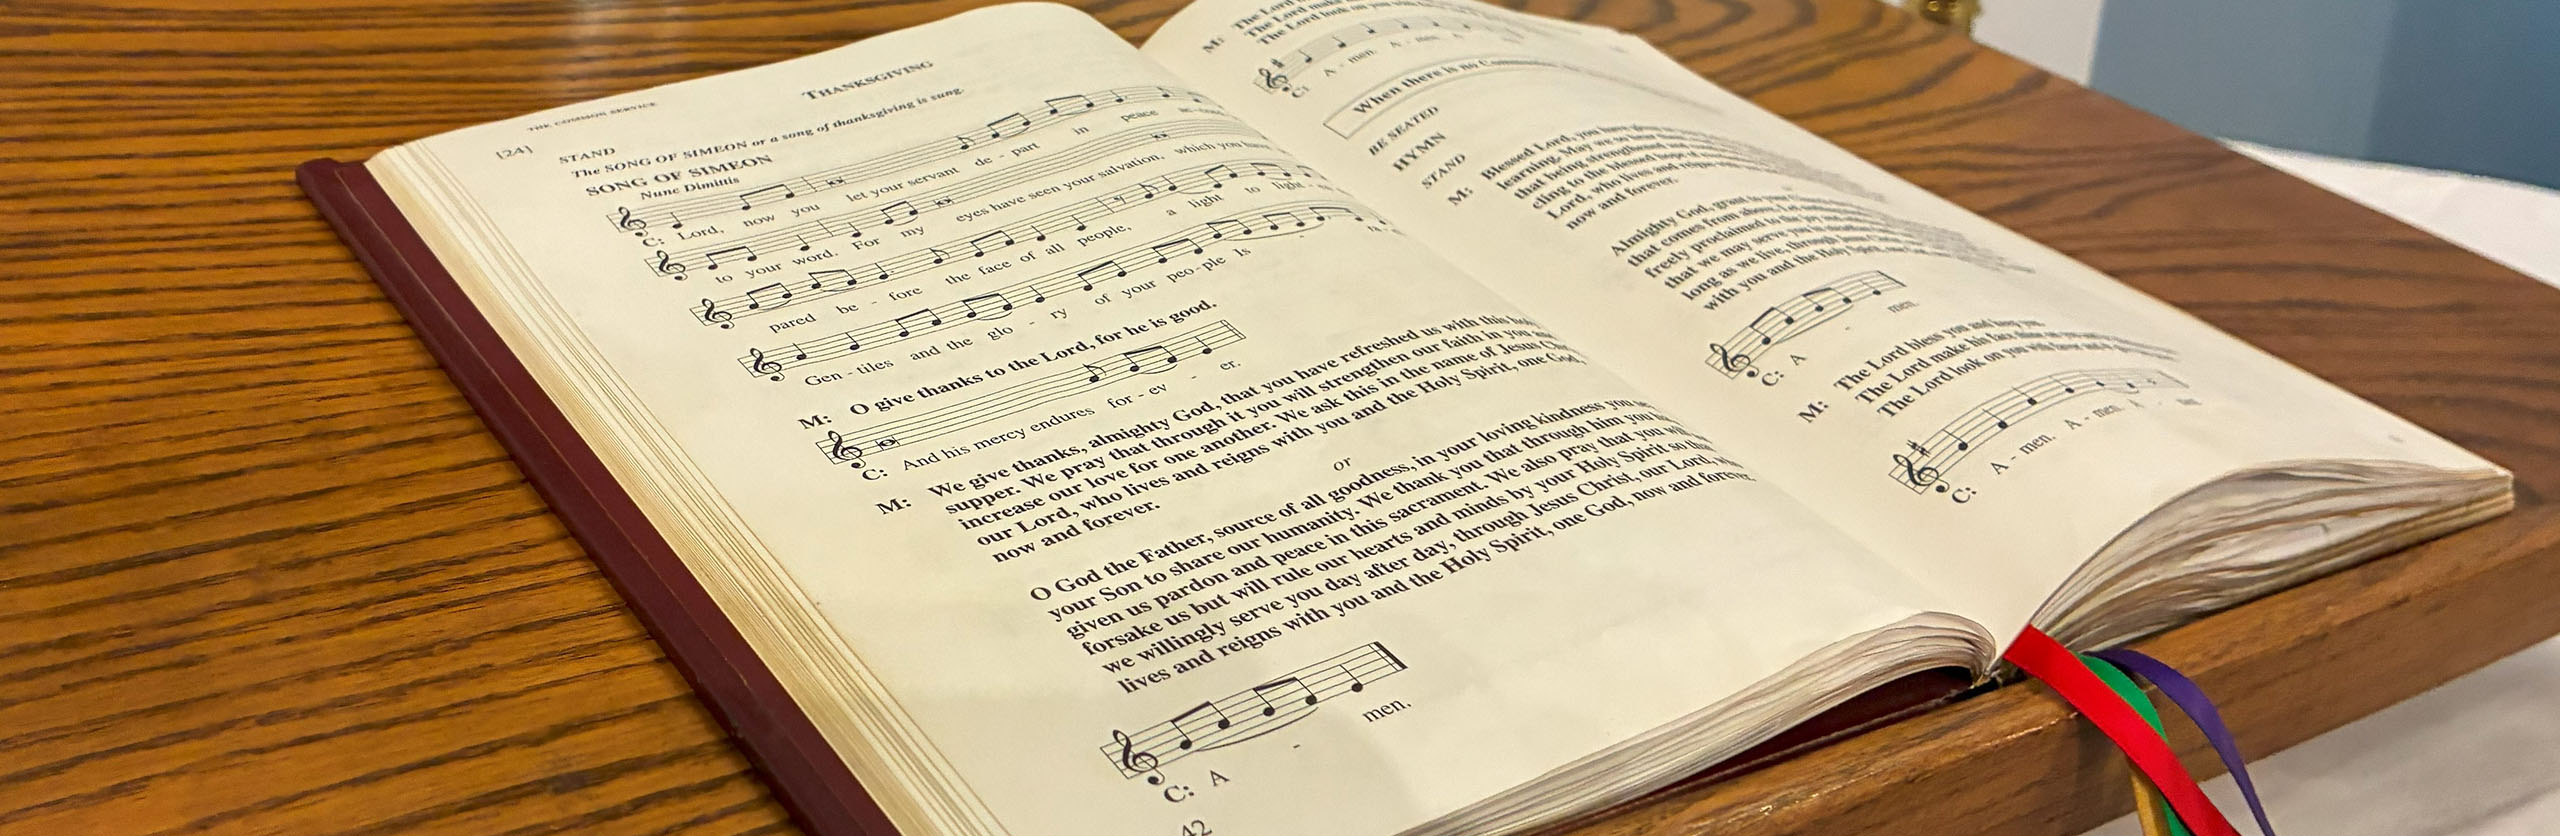 THE COMMON SERVICE
THANKSGIVING
[24] STAND
The SONG OF SIMEON or a song of thanksgiving is sung.
SONG OF SIMEON
Nunc Dimittis
C: Lord, now you let your servant de - part in peace
to your word. For my eyes have seen your salvation, which you have
pared be - fore the face of all people, a light to light -
Gen - tiles and the glo - ry of your peo - ple Is -
M: O give thanks to the Lord, for he is good.
C: And his mercy endures for - ev - er.
M: We give thanks, almighty God, that you have refreshed us with this
supper. We pray that through it you will strengthen our faith in you and
increase our love for one another. We ask this in the name of Jesus
our Lord, who lives and reigns with you and the Holy Spirit, one God,
now and forever.
or
O God the Father, source of all goodness, in your loving kindness you
your Son to share our humanity. We thank you that through him you
given us pardon and peace in this sacrament. We also pray that you will
forsake us but will rule our hearts and minds by your Holy Spirit so that
we willingly serve you day after day, through Jesus Christ, our Lord,
lives and reigns with you and the Holy Spirit, one God, now and forever.
C: A - men.
42
M: The Lord
The Lord make
The Lord look on you
C: A - men. A - men. A
When there is no
BE SEATED
HYMN
STAND
M: Blessed Lord, you have
learning. May we so hear
that being strengthened
cling to the blessed hope
Lord, who lives and reigns
now and forever.
Almighty God, grant
that comes from above. Let
freely proclaimed to the joy
that we may serve you
long as we live, through
with you and the Holy Spirit
C: A - men.
M: The Lord bless you and keep you.
The Lord make his face shine on you
The Lord look on you with favor and
C: A - men. A - men. A - men.